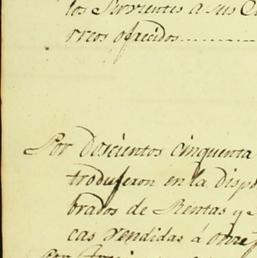 los Sirvientes a sus C
rreos ofrecidos
Por Doscientos cinquenta
trodujeron en la Disp
brados de Rentas y
cas vendidas á